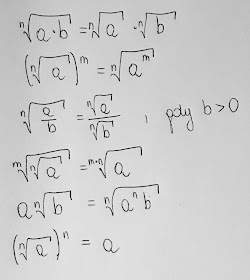 ⁿ√(a·b) = ⁿ√a · ⁿ√b
(ⁿ√a)ᵐ = ⁿ√(aᵐ)
ⁿ√(a/b) = ⁿ√a / ⁿ√b , gdy b > 0
ᵐ√(ⁿ√a) = ᵐ·ⁿ√a
a ⁿ√b = ⁿ√(aⁿb)
(ⁿ√a)ⁿ = a